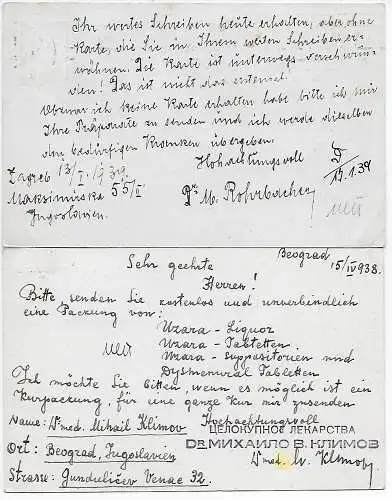 Ihr wertes Schreiben heute erhalten, aber ohne
Karte, die Sie in Ihrem werten Schreiben er-
wähnen. Die Karte ist unterwegs verschwun-
den! Das ist nicht das erstemal.
Obzwar ich keine Karte erhalten habe bitte ich mir
Ihre Präparate zu senden und ich werde dieselben
den bedürftigen Kranken übergeben.
Hochachtungsvoll
Zagreb 13/I. 1939.
Maksimirska 55/I
Jugoslavien.
Dr M. Rohrbacher
17.1.39
Beograd
15/IV 938.
Sehr geehrte
Herren!
Bitte senden Sie kostenlos und unverbindlich
eine Packung von:
Uzara - Liquor
Uzara - Tabletten.
Uzara - Suppositorien und
Dysmenural Tabletten
Ich möchte Sie bitten, wenn es möglich ist ein
Kurpackung, für eine ganze Kur mir zusenden
Hochachtungsvoll
Name: Dr med. Mihail Klimov
ЦЕЛОКУПНО ЛЕКАРСТВА
DR МИХАИЛО В. КЛИМОВ
Ort: Beograd, Jugoslavien
Dr med. M. Klimov
Strasse: Gundulićev Venac 32.